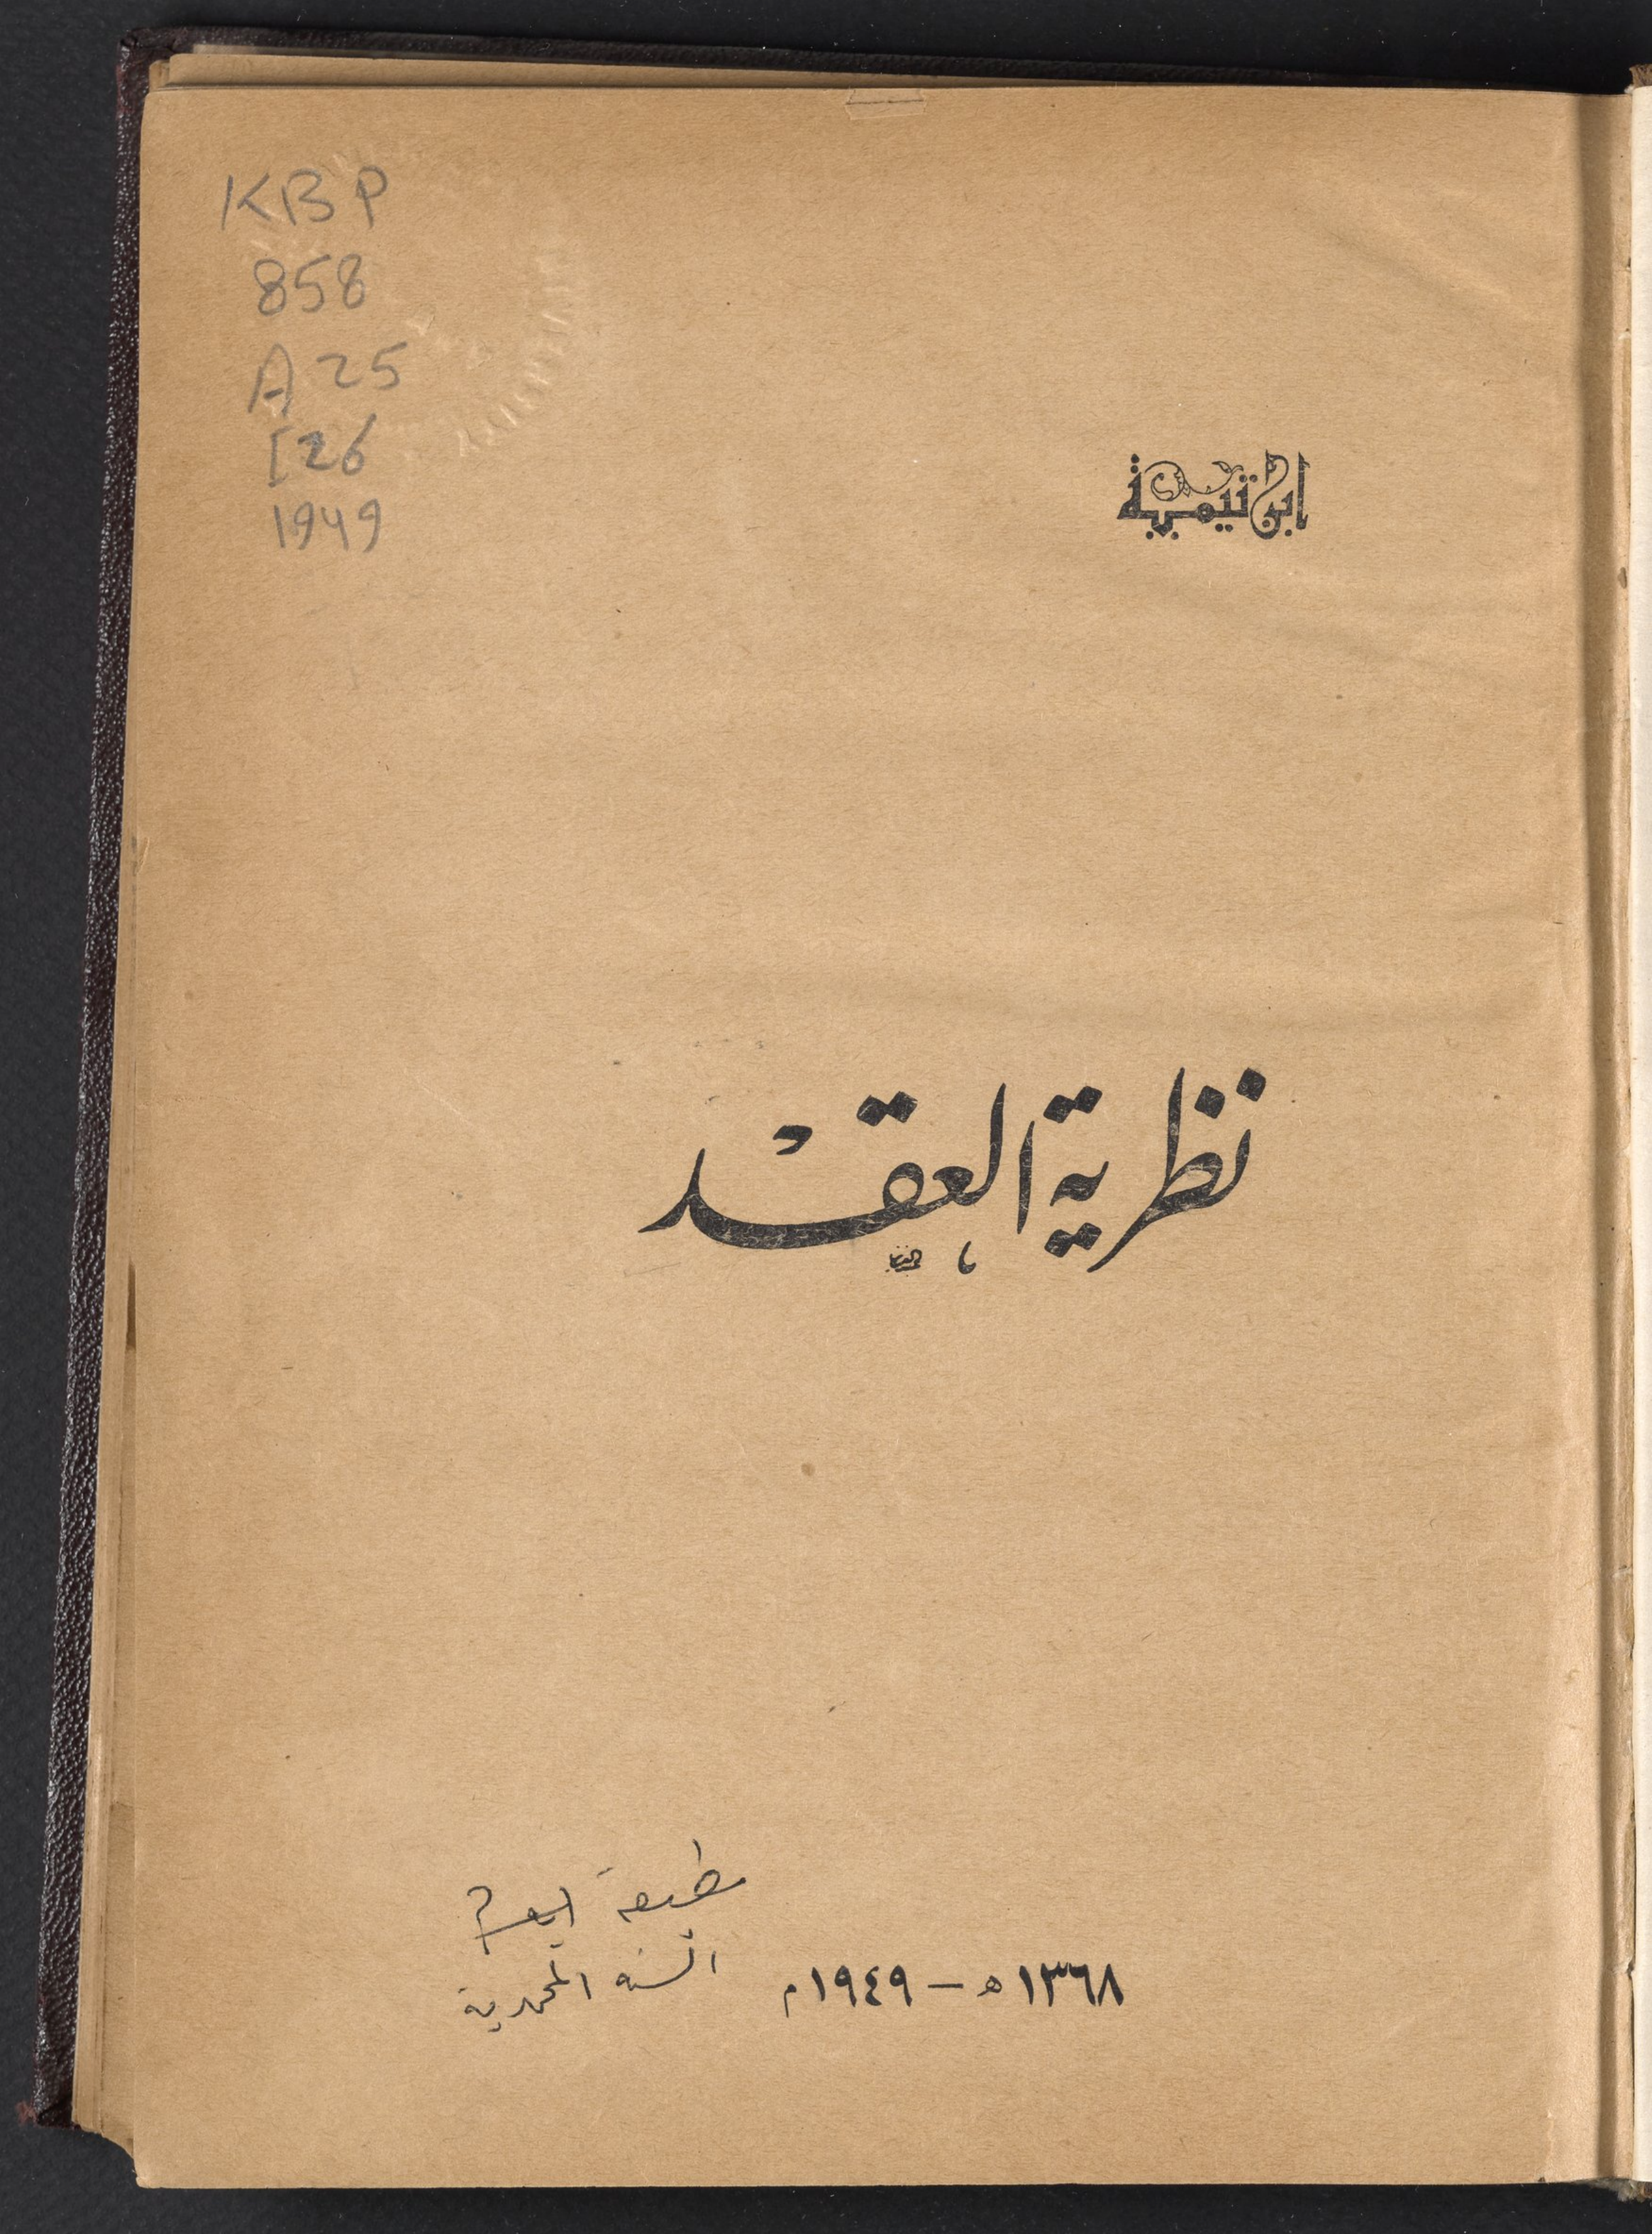 KBP
858
A25
I26
1949
ابن تيمية
نظرية العقد
مطبعة
السنه المحمدية
١٣٦٨ هـ – ١٩٤٩ م